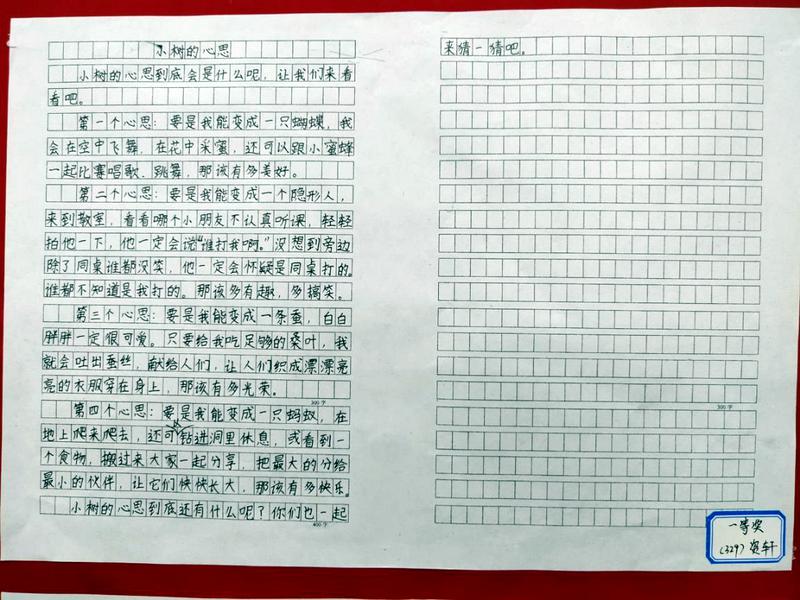 小树的心思
小树的心思到底会是什么呢，让我们来看
看吧。
第一个心思：要是我能变成一只蝴蝶，我
会在空中飞舞，在花中采蜜，还可以跟小蜜蜂
一起比赛唱歌、跳舞，那该有多美好。
第二个心思：要是我能变成一个隐形人，
来到教室，看看哪个小朋友不认真听课，轻轻
拍他一下，他一定会说“谁打我啊。”没想到旁边
除了同桌谁都没笑，他一定会怀疑是同桌打的。
谁都不知道是我打的。那该多有趣，多搞笑。
第三个心思：要是我能变成一条蚕，白白
胖胖一定很可爱。只要给我吃足够的桑叶，我
就会吐出蚕丝，献给人们，让人们织成漂漂亮
亮的衣服穿在身上，那该有多光荣。
300字
第四个心思：要是我能变成一只蚂蚁，在
地上爬来爬去，还可以钻进洞里休息，或看到一
个食物，搬过来大家一起分享，把最大的分给
最小的伙伴，让它们快快长大，那该有多快乐。
小树的心思到底还有什么呢？你们也一起
400字
来猜一猜吧。
300字
一等奖
（329）资轩